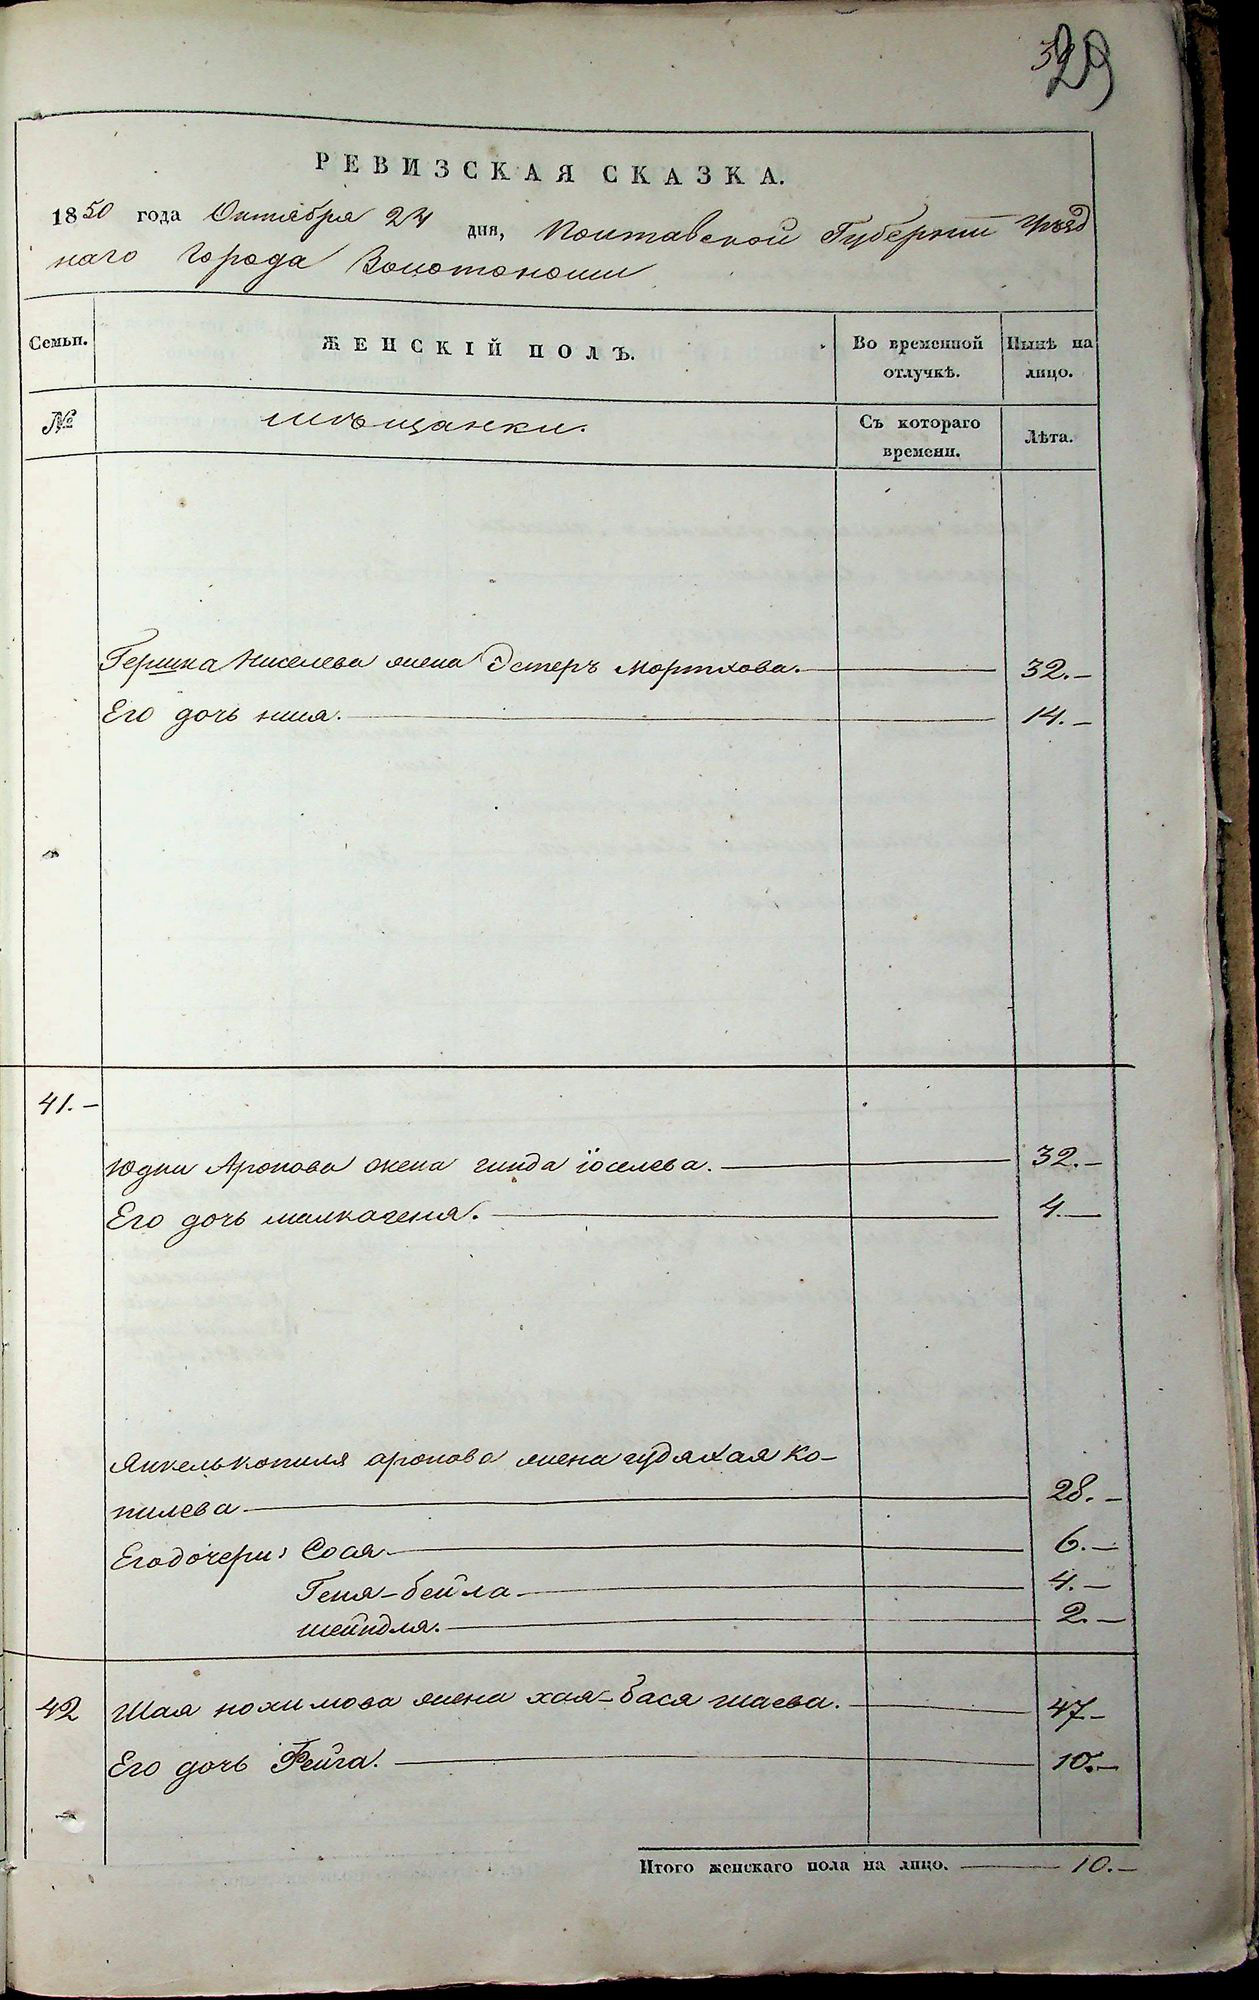 29
РЕВИЗСКАЯ СКАЗКА.
1850 года Октября 24 дня, Полтавской Губернии Уѣзд
наго Города Золотоноши
Семьи. ЖЕНСКІЙ ПОЛЪ. Во временной Нынѣ на
отлучкѣ. лицо.
№ мѣщанки. Съ котораго Лѣта.
времени.
Киселева жена Эстеръ Мортхова. 32.-
Его дочь 14.-
41.-
Юдки Аронова жена гинда іоселева. 32.-
Его дочь малкагеня. 4.-
Янкелькопиля аронова жена гудяхая ко-
пилева 28.-
Егодочери: Сося 6.-
Геня-бейла 4.-
шейндля. 2.-
42 Шая нохимова жена хая-бася шаева. 47-
Его дочь Фейга. 10.-
Итого женскаго пола на лицо. 10.-